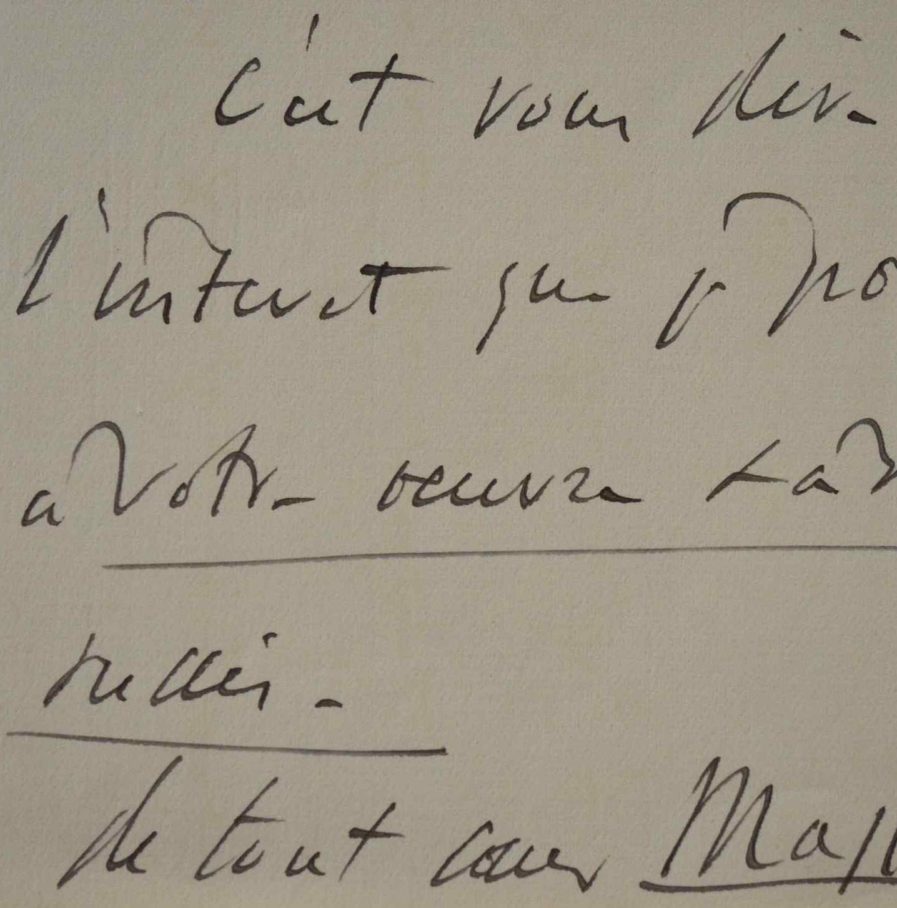 C'est vous dire
l'intérêt que je po
à votre oeuvre & à
succès -
de tout coeur